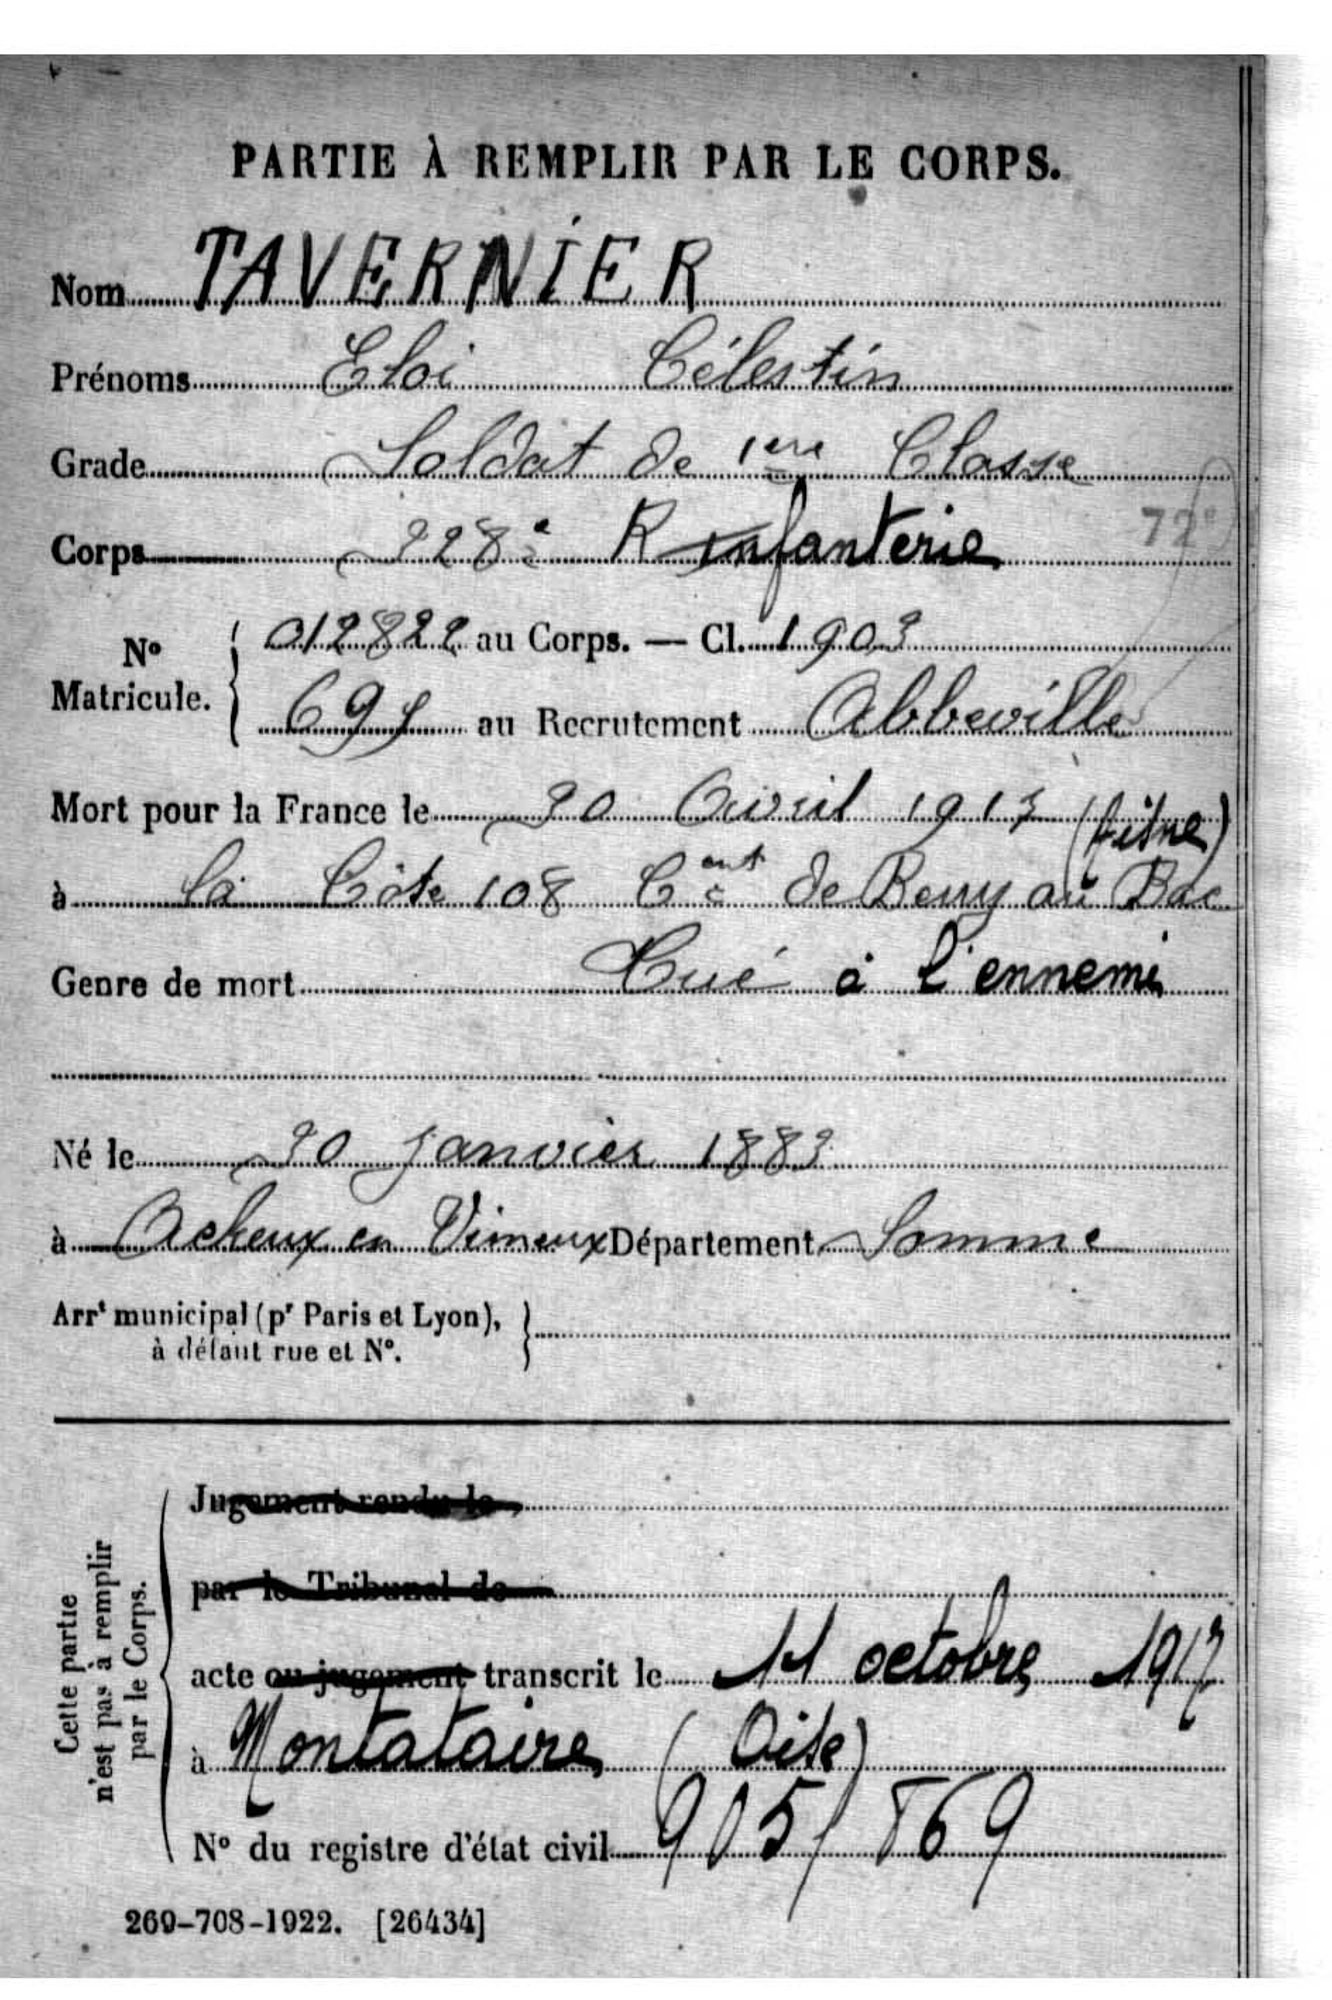 PARTIE À REMPLIR PAR LE CORPS.
Nom TAVERNIER
Prénoms Eloi Célestin
Grade Soldat de 1ère Classe
Corps 228e R infanterie 72e
No Matricule. 012822 au Corps. — Cl. 1903
691 au Recrutement Abbeville
Mort pour la France le 20 Avril 1917 (Aisne)
à la Côte 108 Cant de Berry au Bac
Genre de mort Tué à l'ennemi
Né le 20 Janvier 1883
à Acheux en Vimeux Département Somme
Arrt municipal (pr Paris et Lyon),
à défaut rue et No.
Cette partie n'est pas à remplir par le Corps.
Jugement rendu le
par le Tribunal de
acte ou jugement transcrit le 11 octobre 1917
à Montataire (Oise)
No du registre d'état civil 905/869
269-708-1922. [26434]